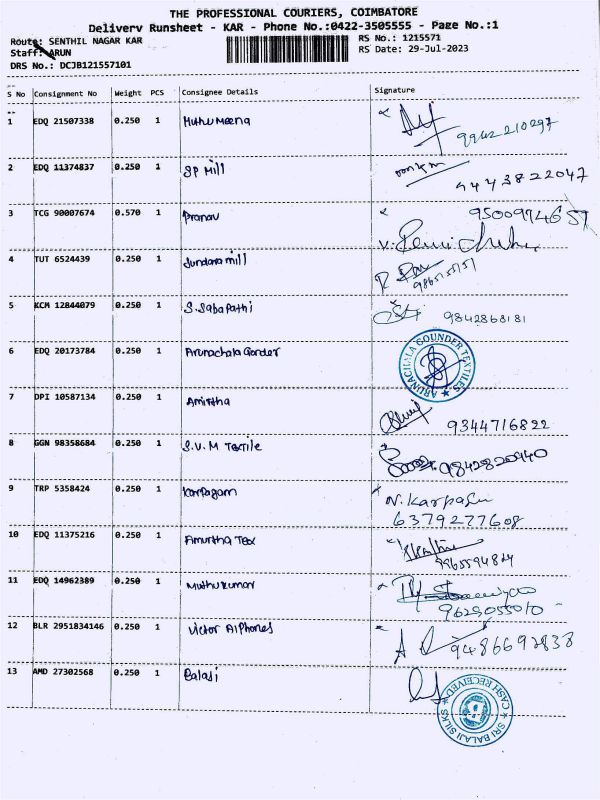 THE PROFESSIONAL COURIERS, COIMBATORE
Delivery Runsheet - KAR - Phone No.:0422-3505555 - Page No.:1
Route: SENTHIL NAGAR KAR
RS No.: 1215571
Staff: ARUN
RS Date: 29-Jul-2023
DRS No.: DCJB121557101
S No Consignment No Weight PCS Consignee Details Signature
1 EDQ 21507338 0.250 1 Muthu Meena
9942210297
2 EDQ 11374837 0.250 1 SP Mill
9443822047
3 TCG 90007674 0.570 1 Pranav 9500974657
4 TUT 6524439 0.250 1 Sundara mill
9865151151
5 KCM 12844079 0.250 1 S. Sabapathi 9842868181
6 EDQ 20173784 0.250 1 Arunachala Gonder
ARUNACHALA GOUNDER TEXTILES
7 DPI 10587134 0.250 1 Amirtha
9344716822
8 GGN 98358684 0.250 1 S.V.M Textile
9842820940
9 TRP 5358424 0.250 1 Karpagam N. Karpagam
6379277608
10 EDQ 11375216 0.250 1 Amurtha Tex
9965594824
11 EDQ 14962389 0.250 1 Muthukumar
9629055010
12 BLR 2951834146 0.250 1 Victor AlPhones
9486692838
13 AMD 27302568 0.250 1 Balaji
CASH RECEIVED
SRI BALAJI SILKS